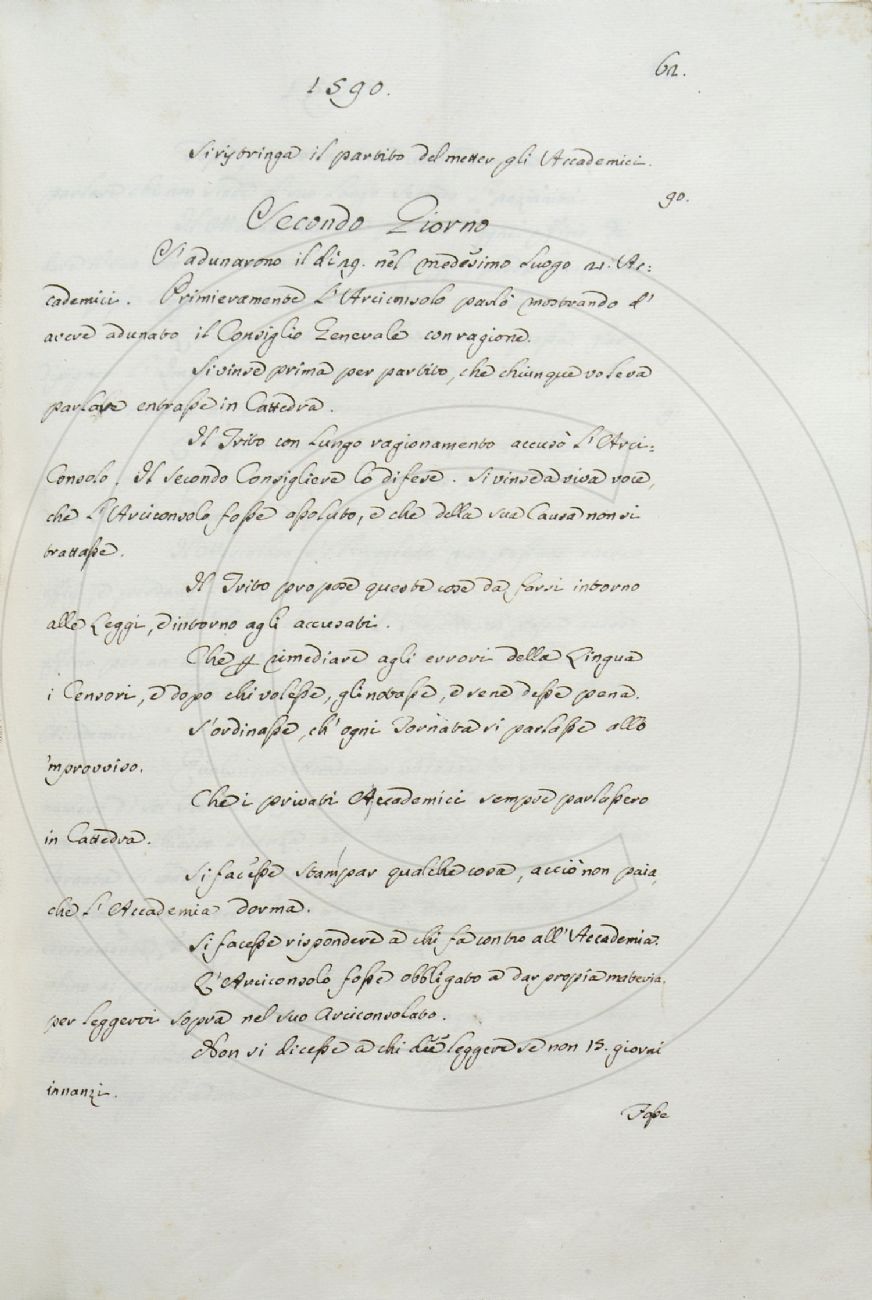 62.
1590.
Si ristringa il partito del metter gli Accademici.
90.
Secondo Giorno
S'adunarono il dì 29. nel medesimo luogo 21. Ac:
cademici. Primieramente l'Arciconsolo parlò mostrando d'
avere adunato il Consiglio Generale con ragione.
Si vinse prima per partito, che chiunque voleva
parlare entraſse in Cattedra.
Il Trito con lungo ragionamento accusò l'Arci:
Consolo. Il secondo Consigliere lo difese. Si vinse a viva voce,
che l'Arciconsolo foſse aſsoluto, e che della sua Causa non si
trattaſse.
Il Trito propose queste cose da farsi intorno
alle Leggi, e intorno agli accusati.
Che p rimediare agli errori della Lingua
i Censori, e dopo chi voleſse, gli notaſse, e se ne deſse pena.
S'ordinaſse, ch'ogni Tornata si parlaſse allo
'mprovviso.
Che i privati Accademici sempre parlaſsero
in Cattedra.
Si faceſse stampar qualche cosa, acciò non paia,
che l'Accademia dorma.
Si faceſse rispondere a chi fa contro all'Accademia.
L'Arciconsolo foſse obbligato a dar propia materia,
per leggervi sopra nel suo Arciconsolato.
Non si diceſse a chi dee leggere se non 15. giorni
innanzi.
Foſse